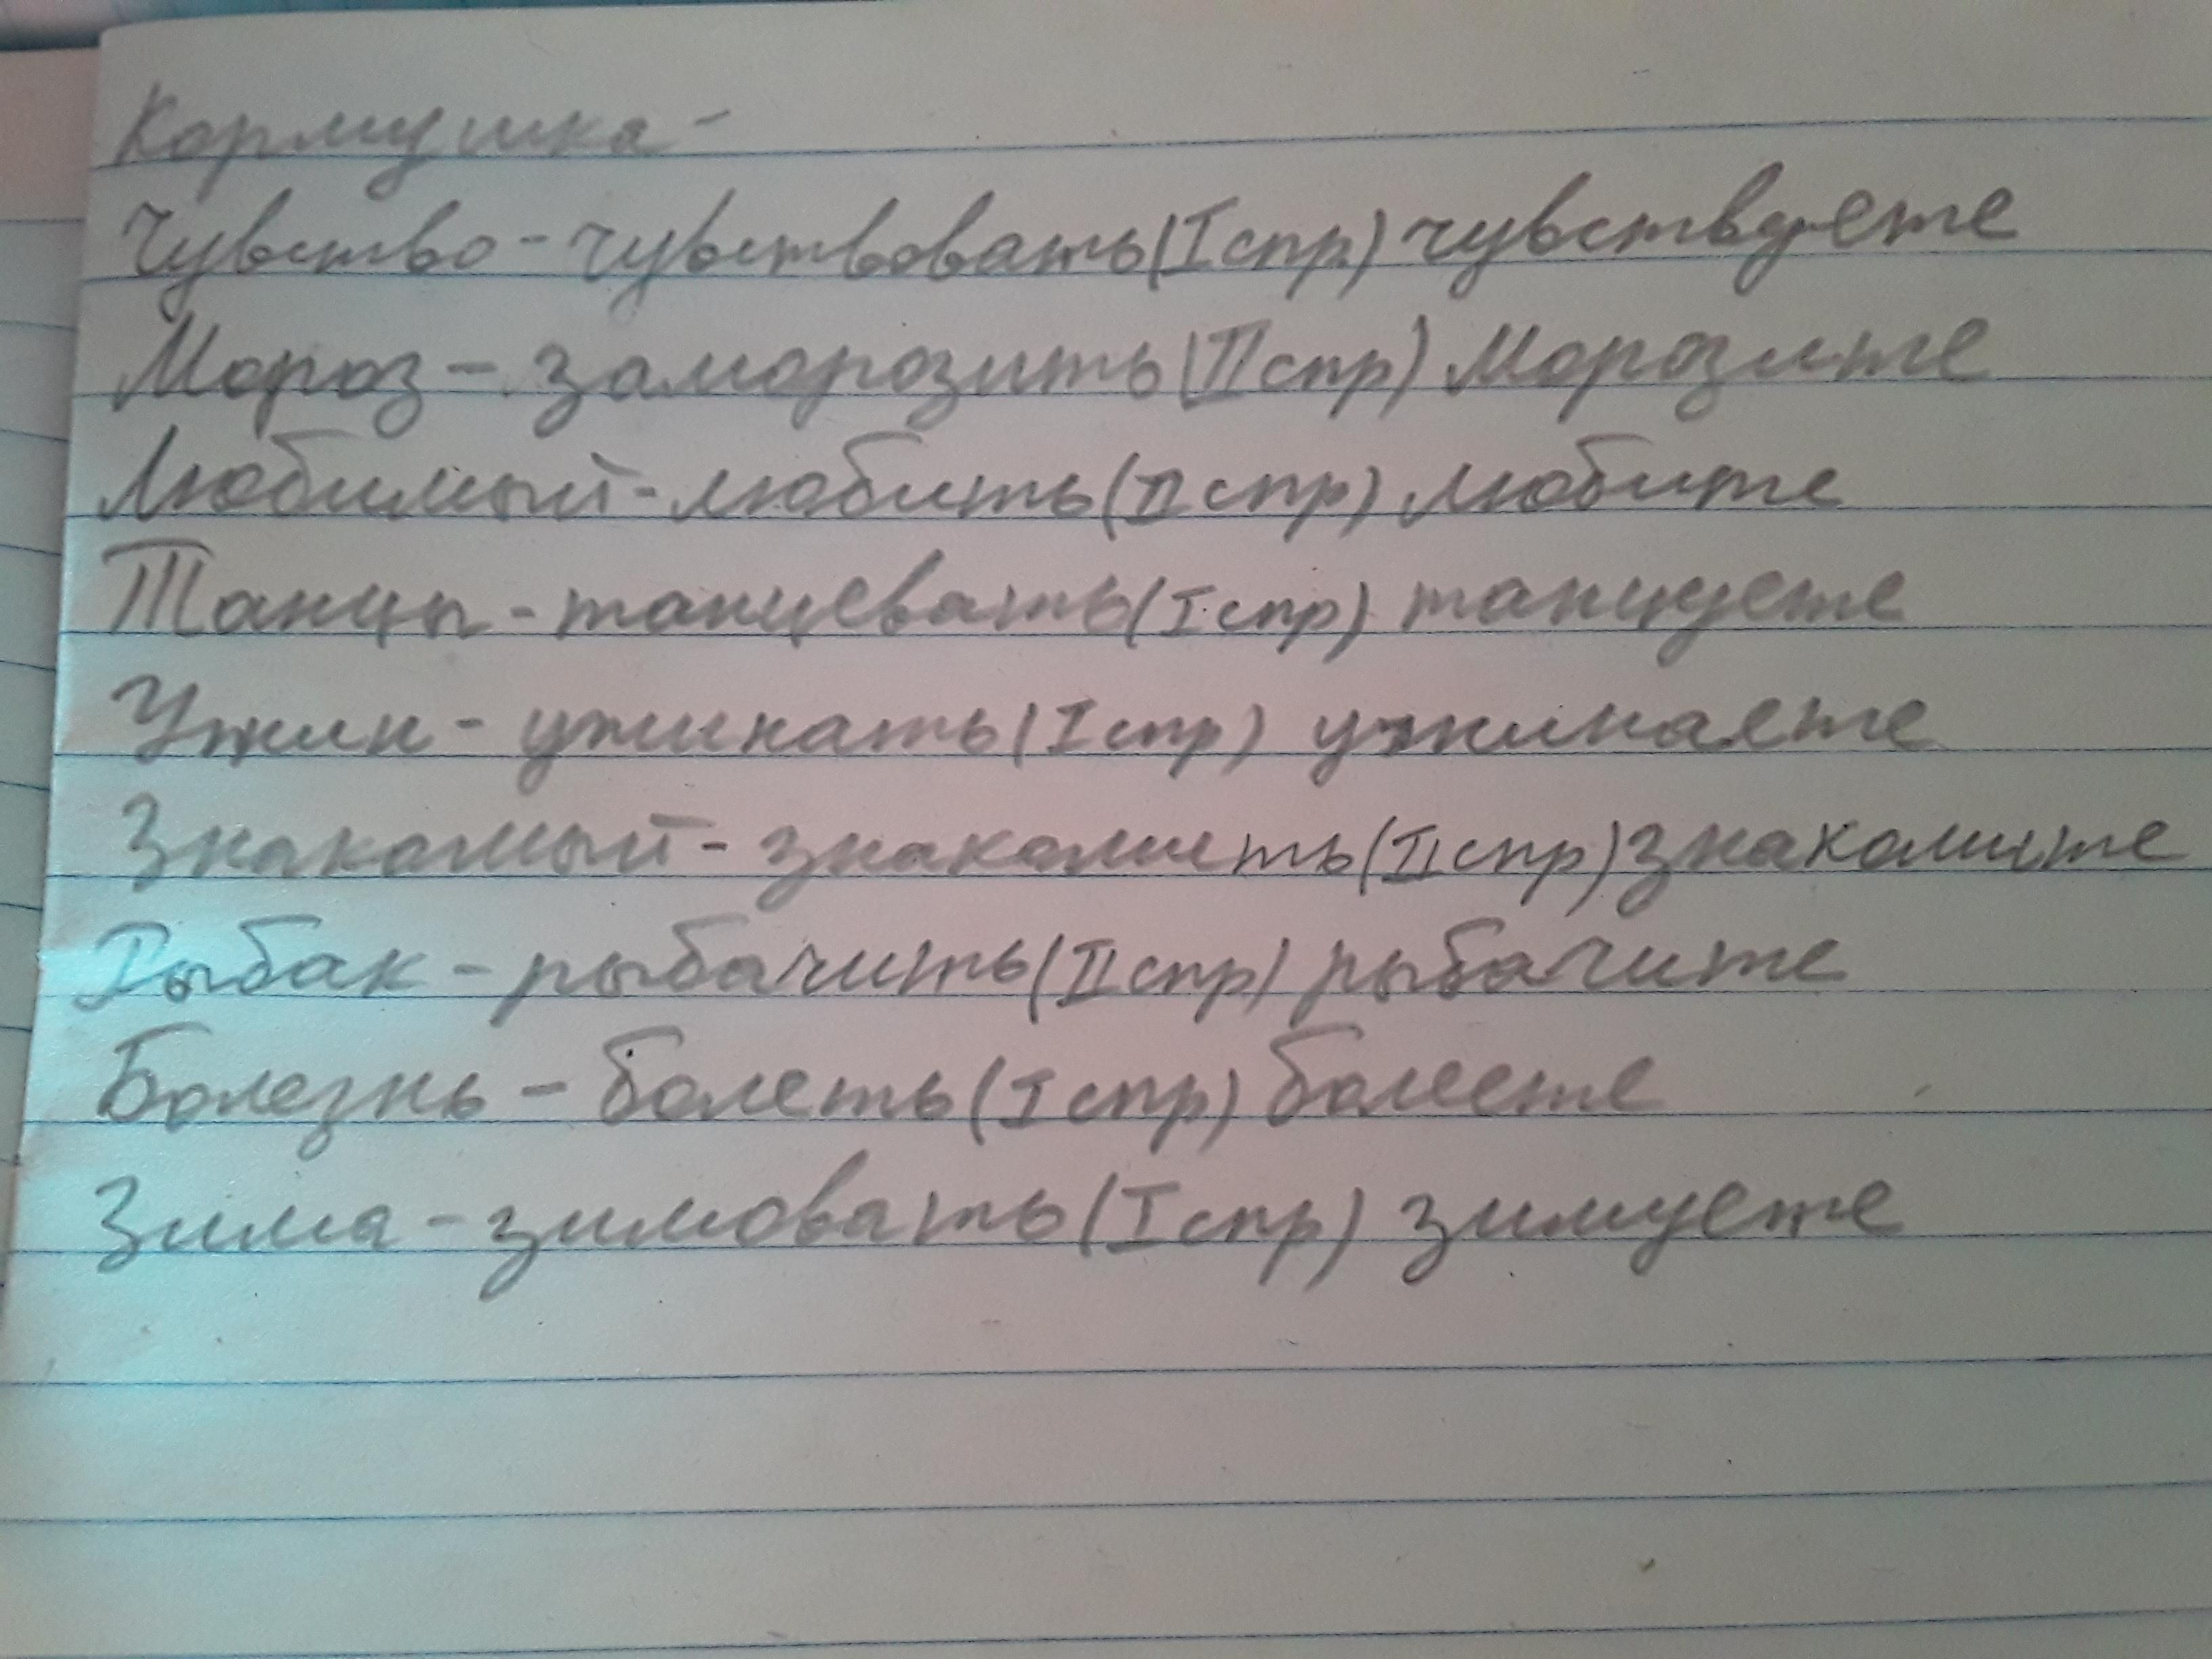 Кормушка -
Чувство - чувствовать (I спр.) чувствуете
Мороз - заморозить (II спр) морозите
Любимый - любить (II спр) любите
Танцы - танцевать (I спр) танцуете
Ужин - ужинать (I спр) ужинаете
Знакомый - знакомить (II спр) знакомите
Рыбак - рыбачить (II спр) рыбачите
Болезнь - болеть (I спр) болеете
Зима - зимовать (I спр) зимуете